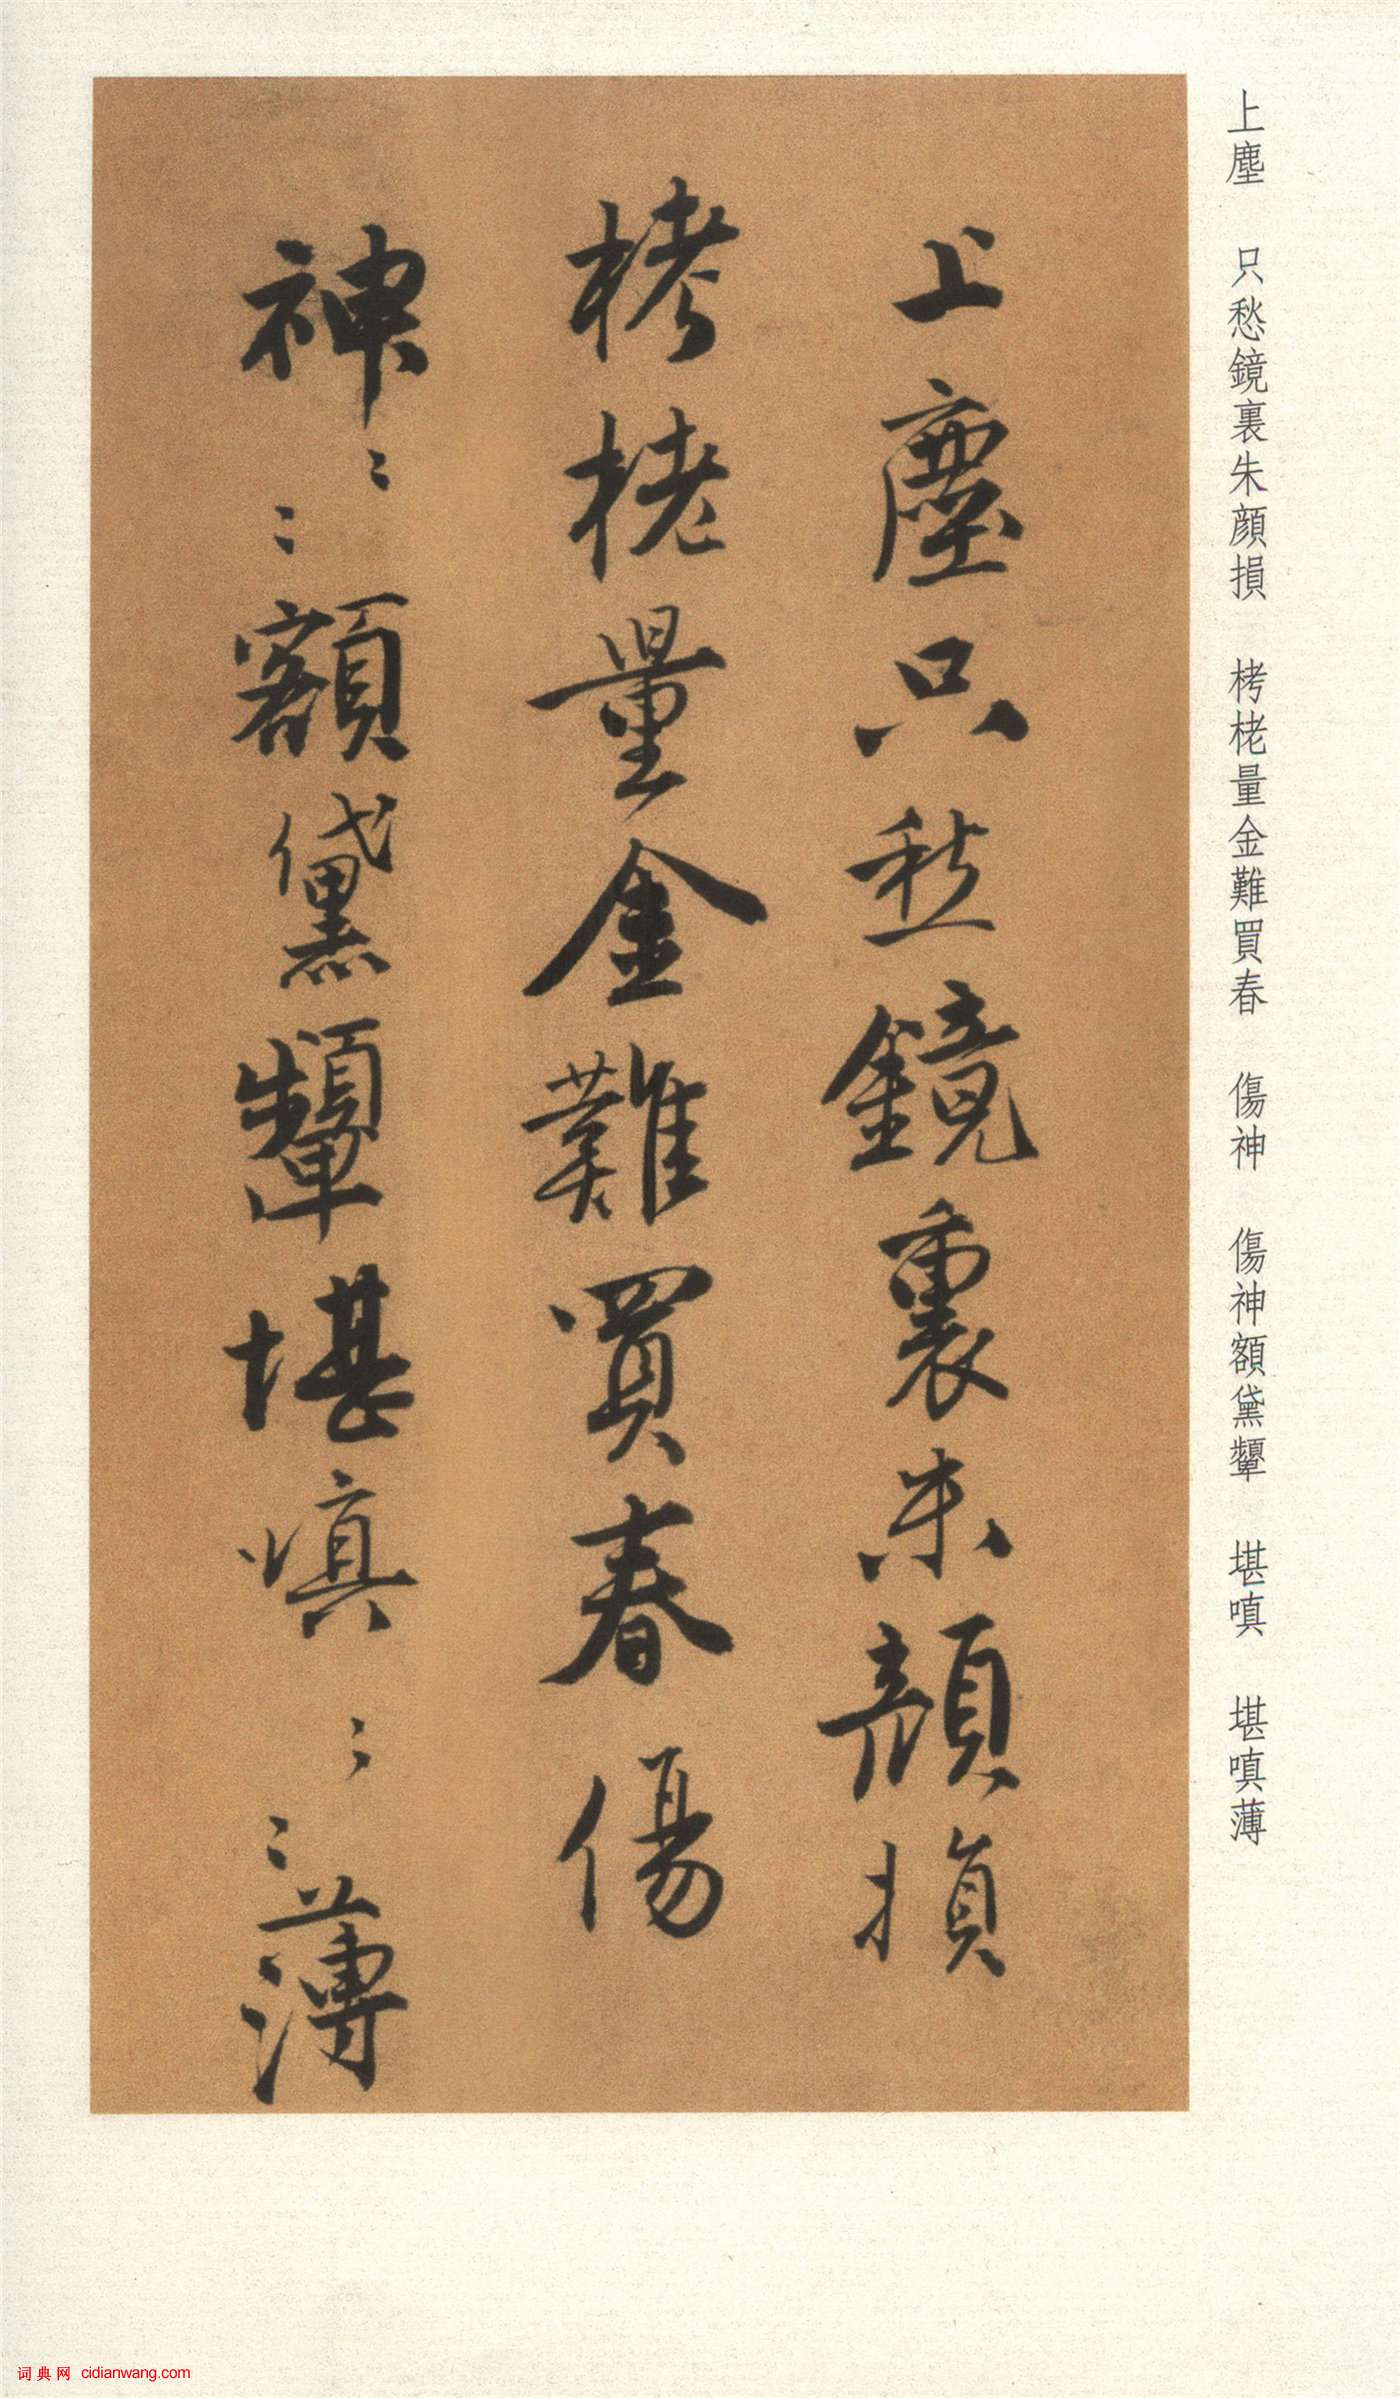 上塵　只愁鏡裏朱顔損　栲栳量金難買春　傷神　傷神額黛顰　堪嗔　堪嗔薄
上塵只愁鏡裏朱顔損
栲栳量金難買春傷
神〻〻額黛顰堪嗔〻〻薄
词典网 cidianwang.com